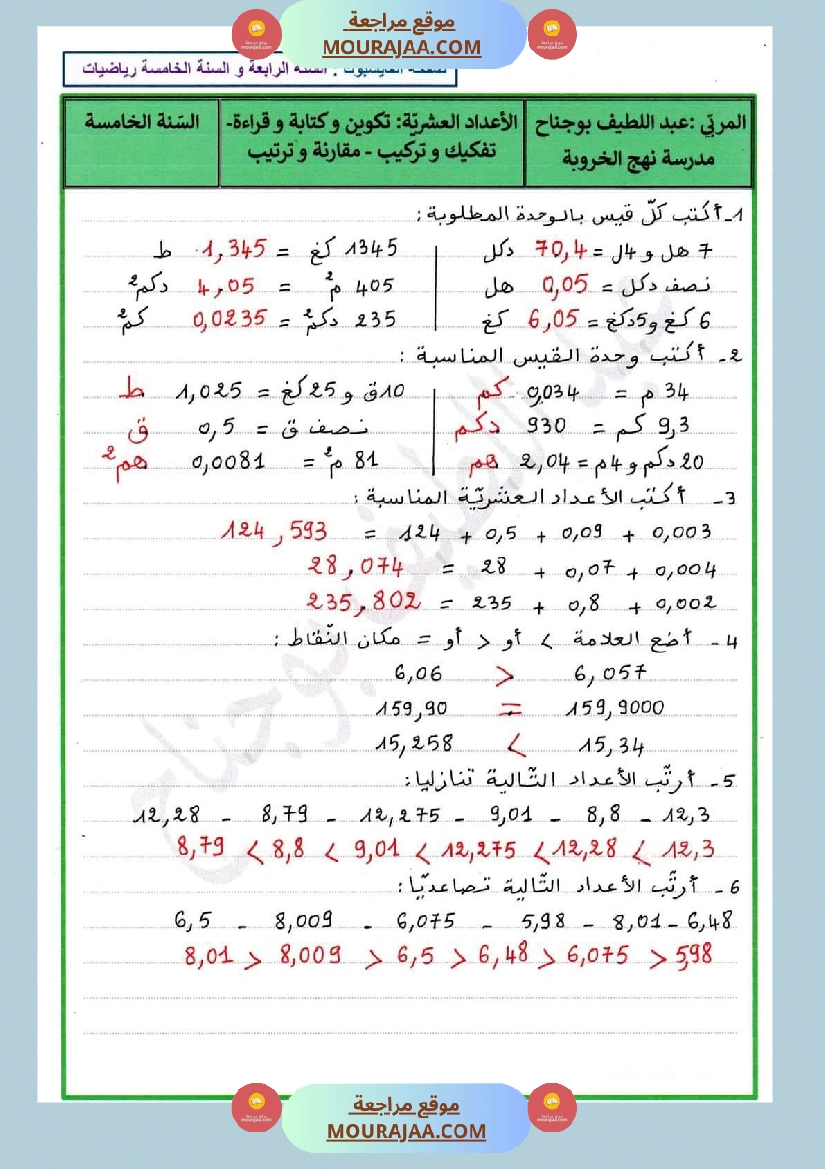 موقع مراجعة
MOURAJAA.COM
صفحة الفايسبوك : السنة الرابعة و السنة الخامسة رياضيات
المربّي :عبد اللطيف بوجناح
مدرسة نهج الخروبة
الأعداد العشريّة: تكوين و كتابة و قراءة-
تفكيك و تركيب - مقارنة و ترتيب
السّنة الخامسة
1- أكتب كلّ قيس بالوحدة المطلوبة :
7 هل و 4ل = 70,4 دكل
1345 كغ = 1,345 ط
نصف دكل = 0,05 هل
405 م² = 4,05 دكم²
6 كغ و5دكغ = 6,05 كغ
235 دكم² = 0,0235 كم²
2- أكتب وحدة القيس المناسبة :
34 م = 0,034 كم
10ق و 25كغ = 1,025 ط
9,3 كم = 930 دكم
نصف ق = 0,5 ق
20 دكم و 4م = 2,04 هم
81 م² = 0,0081 هم²
3- أكتب الأعداد العشريّة المناسبة :
124,593 = 124 + 0,5 + 0,09 + 0,003
28,074 = 28 + 0,07 + 0,004
235,802 = 235 + 0,8 + 0,002
4- أضع العلامة < أو > أو = مكان النّقاط :
6,06 > 6,057
159,90 = 159,9000
15,258 < 15,34
5- أرتّب الأعداد التّالية تنازليا:
12,28 - 8,79 - 12,275 - 9,01 - 8,8 - 12,3
8,79 < 8,8 < 9,01 < 12,275 < 12,28 < 12,3
6- أرتّب الأعداد التّالية تصاعديّا:
6,5 - 8,009 - 6,075 - 5,98 - 8,01 - 6,48
8,01 > 8,009 > 6,5 > 6,48 > 6,075 > 5,98
عبد اللطيف بوجناح
موقع مراجعة
MOURAJAA.COM